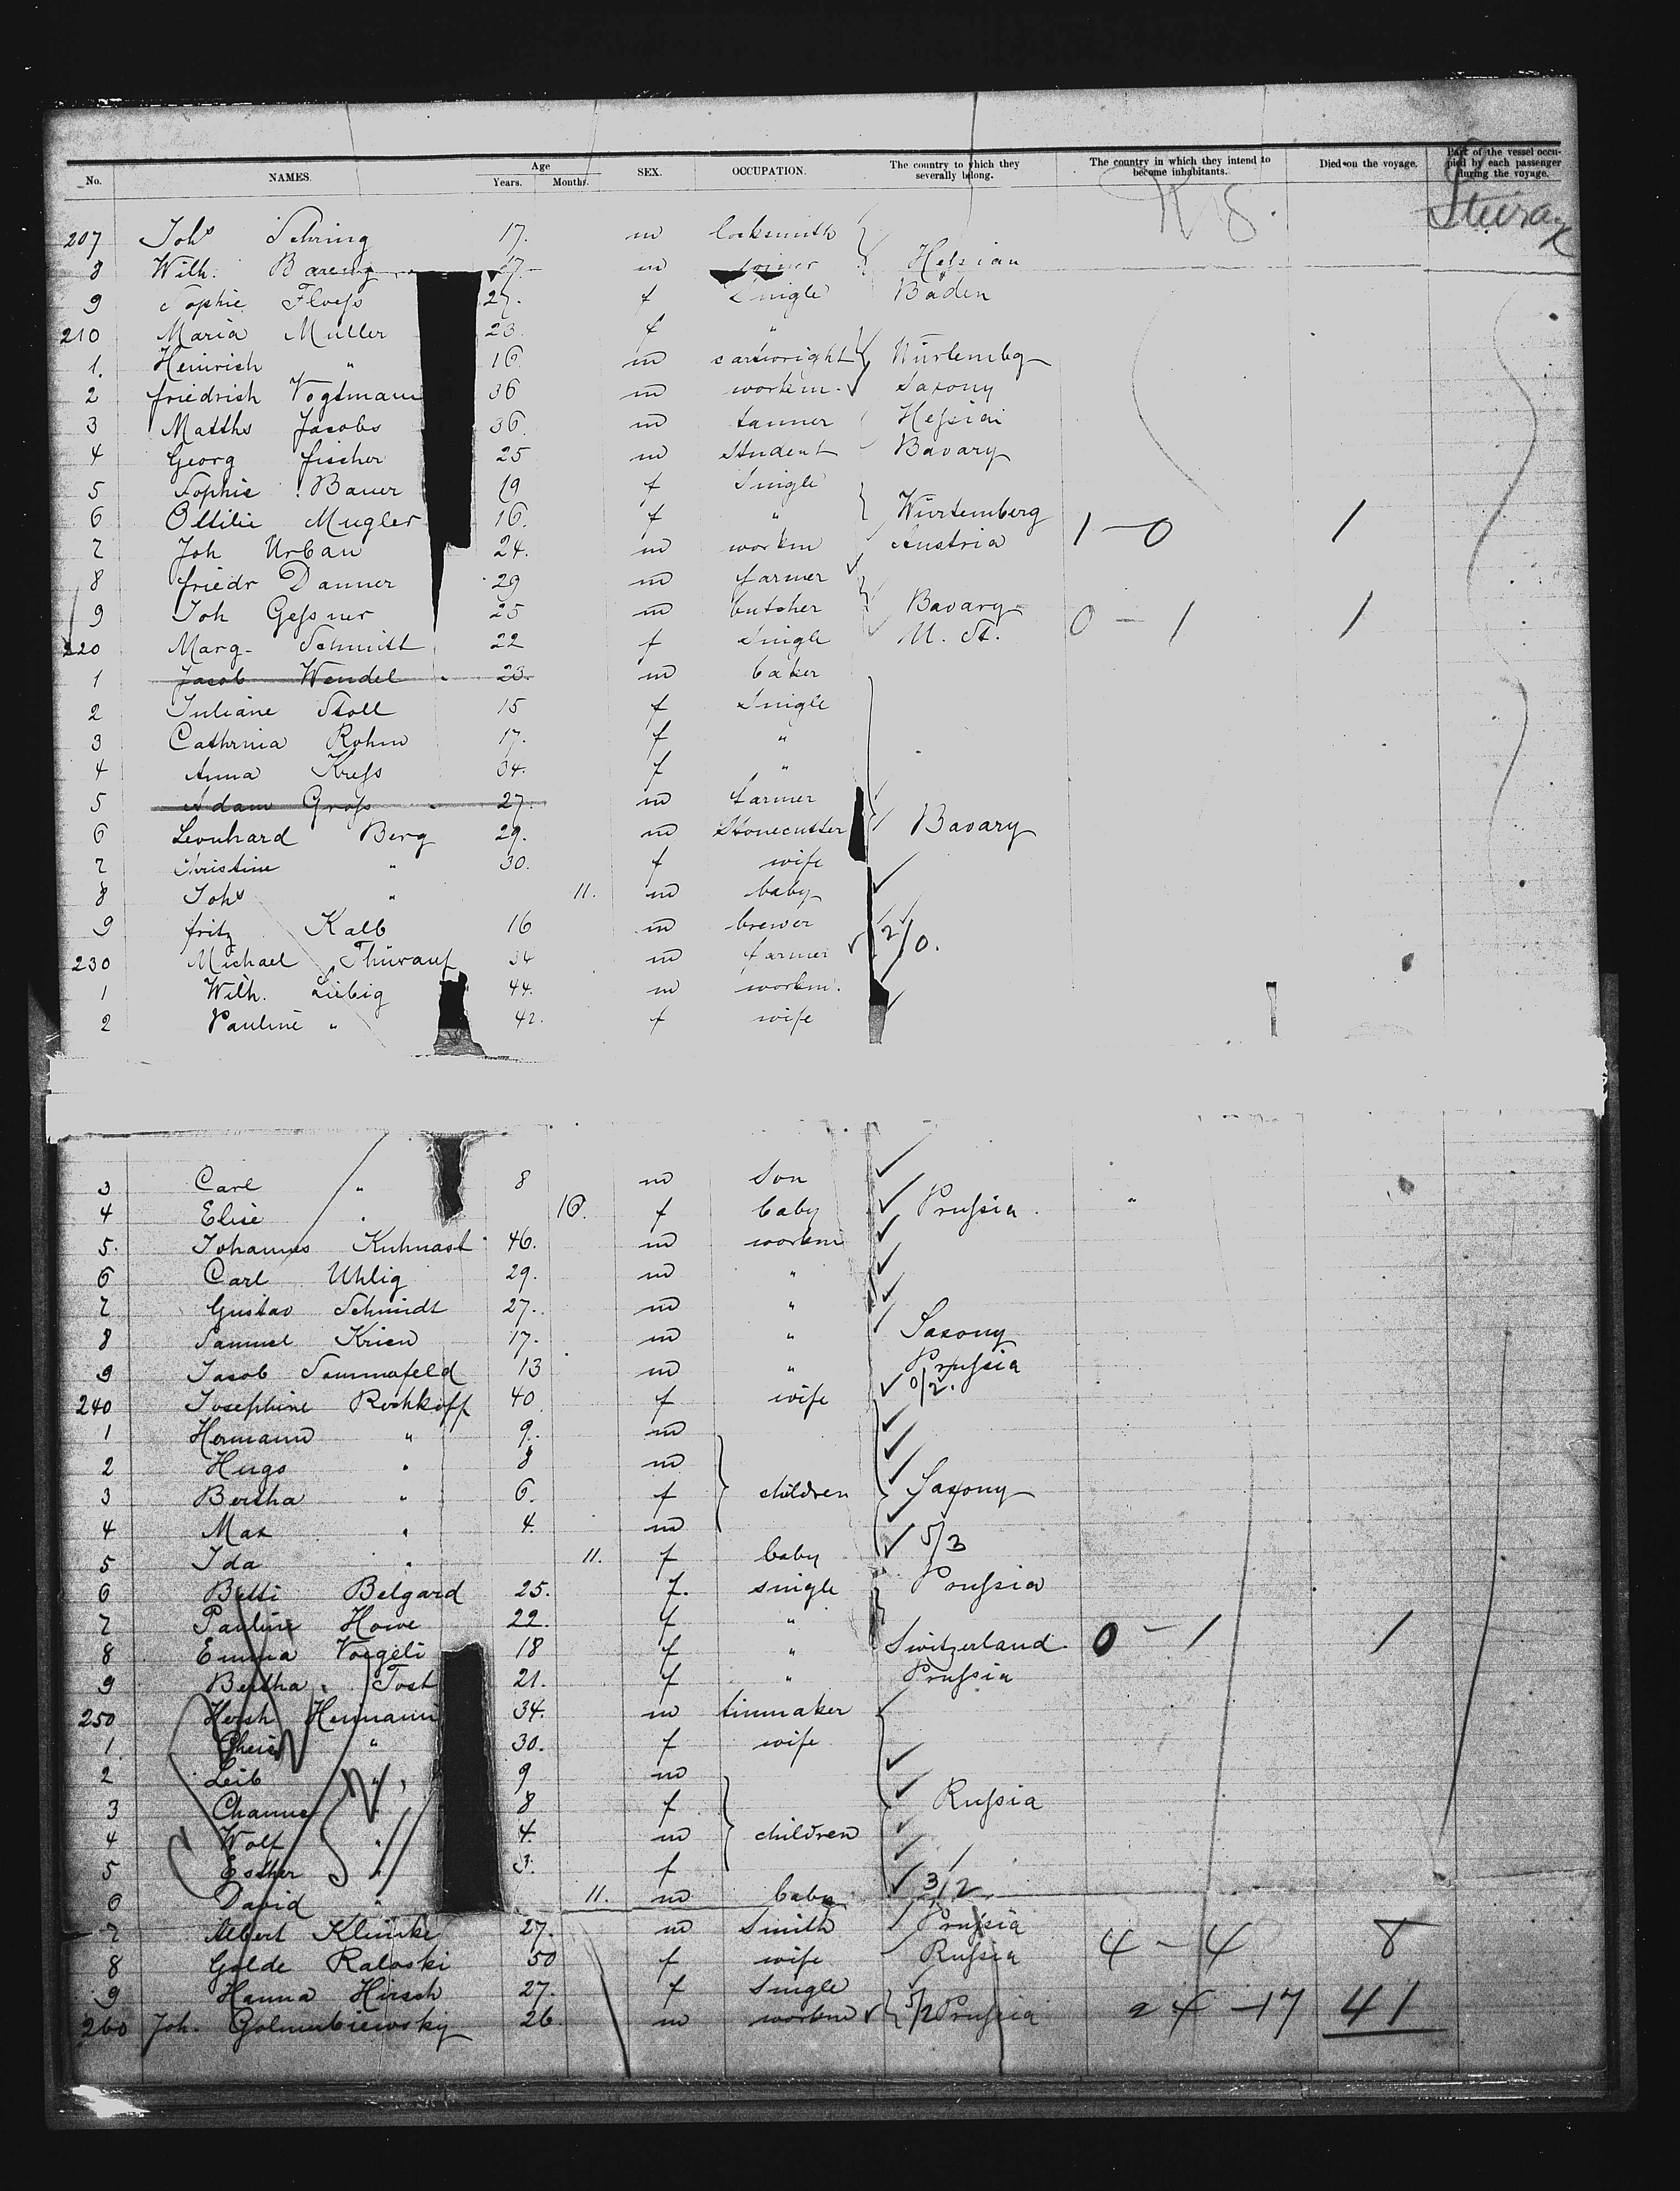 No. NAMES. Age Years. Months. SEX. OCCUPATION. The country to which they severally belong. The country in which they intend to become inhabitants. Died on the voyage. Part of the vessel occupied by each passenger during the voyage.
207 Johs Sehring 17. m locksmith
8 Wilh. 27. m joiner Heſsian
9 Sophie Floeſs 27. f Single Baden
210 Maria Müller 23. f "
1. Heinrich " 16. m cartwright Würtembg
2 friedrich Vogtmann 36 m workm. Saxony
3 Matths Jacobs 36. m tanner Heſsian
4 Georg fischer 25 m Student Bavary
5 Sophie Bauer 19 f Single
6 Ottilie Mugler 16. f " Würtemberg
7 Joh Urban 24. m workm Austria 1-0 1
8 friedr Danner 29 m farmer
9 Joh Geſsner 25 m butcher Bavary
220 Marg. Schmitt 22 f Single U. St. 0-1 1
1 Jacob Wendel 23. m baker
2 Juliane Stoll 15 f Single
3 Cathrina Rohm 17. f "
4 Anna Kreſs 34. f "
5 Adam Groſs 27. m farmer
6 Leonhard Berg 29. m Stonecutter Bavary
7 Christine " 30. f wife
8 Johs " 11. m baby
9 fritz Kalb 16 m brewer 2/0.
230 Michael Thürauf 34 m farmer
1 Wilh. Liebig 44. m workm.
2 Pauline " 42. f wife
3 Carl " 8 m Son
4 Elise " 10. f baby Pruſsia. "
5. Johannes Kuhnast 46. m workm
6 Carl Uhlig 29. m "
7 Gustav Schmidt 27. m "
8 Samuel Krien 17. m " Saxony
9 Jacob Sommerfeld 13 m " Pruſsia
240 Josephine Rochkoff 40 f wife 0/2.
1 Hermann " 9. m
2 Hugo " 8 m
3 Bertha " 6. f children Saxony
4 Max " 4. m
5 Ida " 11. f baby 5/3
6 Betti Belgard 25. f. single Pruſsia
7 Pauline Howe 22. f "
8 Emma Voegeli 18 f " Switzerland 0-1 1
9 Bertha Tost 21. f " Pruſsia
250 Hersh Heimann 34. m tinmaker
1. " 30. f wife
2 Leib " 9 m
3 Channe " 8 f Ruſsia
4 Wolf " 4. m children
5 Esther " 3. f
6 David " 11. m baby 3/2
7 Albert Klimke 27. m Smith Pruſsia
8 Golde Raloski 50 f wife Ruſsia 4-4 8
9 Hanna Hirsch 27. f Single
260 Joh. Golumbiewsky 26. m workm 5/2 Pruſsia 24-17 41